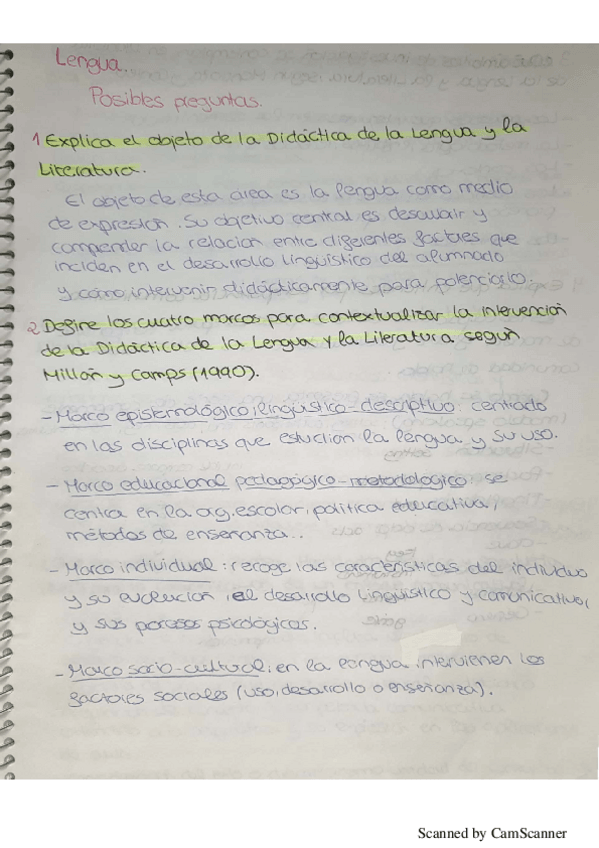 Lengua.
Posibles preguntas.
1 Explica el objeto de la Didáctica de la Lengua y la
Literatura.
El objeto de esta area es la lengua como medio
de expresión. Su objetivo central es describir y
comprender la relación entre diferentes factores que
inciden en el desarrollo lingüístico del alumnado
y cómo intervenir didácticamente para potenciarlo.
2 Define los cuatro marcos para contextualizar la intervención
de la Didáctica de la Lengua y la Literatura según
Millán y Camps (1990).
- Marco epistemológico, lingüístico-descriptivo: centrado
en las disciplinas que estudian la lengua y su uso.
- Marco educacional pedagógico-metodológico: se
centra en la og. escolar, política educativa,
métodos de enseñanza..
- Marco individual: recoge las características del individuo
y su evolución, el desarrollo lingüístico y comunicativo,
y sus procesos psicológicos.
- Marco socio-cultural: en la lengua intervienen los
factores sociales (uso, desarrollo o enseñanza).
Scanned by CamScanner